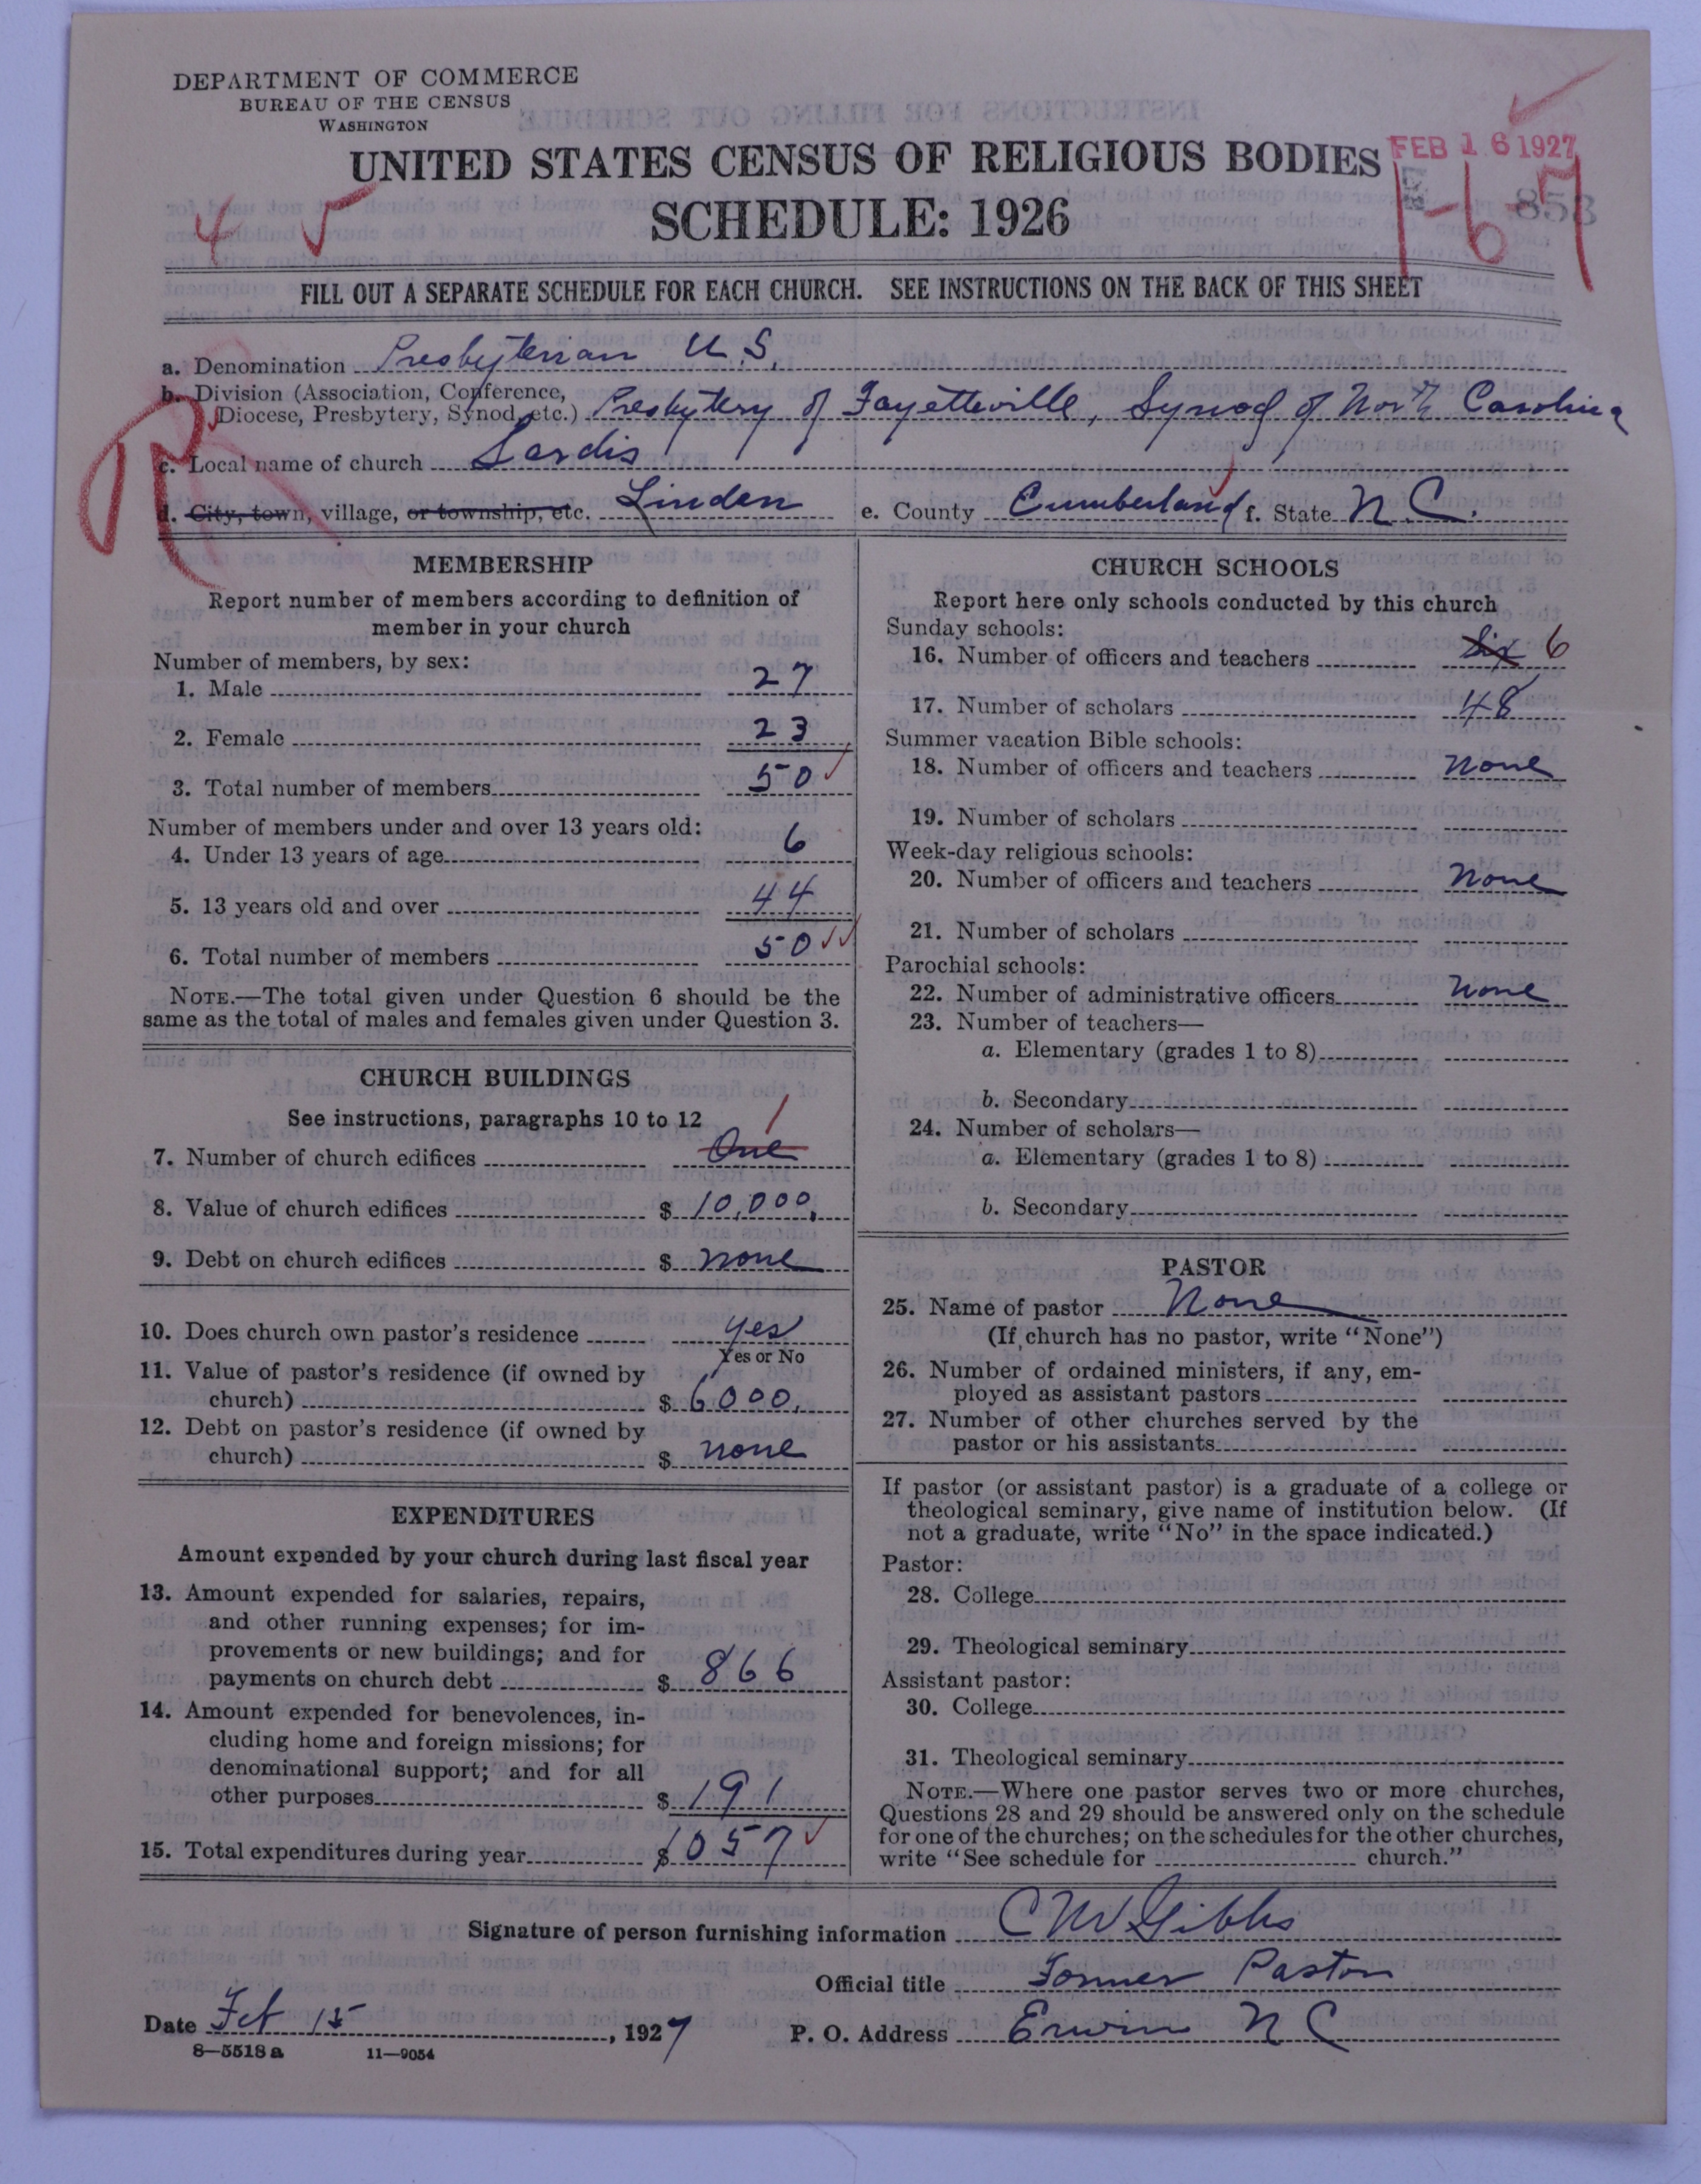 DEPARTMENT OF COMMERCE
BUREAU OF THE CENSUS
WASHINGTON
UNITED STATES CENSUS OF RELIGIOUS BODIES
FEB 16 1927
SCHEDULE: 1926
4 5
1-6-7
853
FILL OUT A SEPARATE SCHEDULE FOR EACH CHURCH. SEE INSTRUCTIONS ON THE BACK OF THIS SHEET
a. Denomination Presbyterian U.S.
b. Division (Association, Conference,
Diocese, Presbytery, Synod, etc.) Presbytery of Fayetteville, Synod of North Carolina
R
c. Local name of church Sardis
d. City, town, village, or township, etc. Linden e. County Cumberland f. State N.C.
MEMBERSHIP
Report number of members according to definition of
member in your church
Number of members, by sex:
1. Male 27
2. Female 23
3. Total number of members 50
Number of members under and over 13 years old:
4. Under 13 years of age 6
5. 13 years old and over 44
6. Total number of members 50
NOTE.—The total given under Question 6 should be the
same as the total of males and females given under Question 3.
CHURCH BUILDINGS
See instructions, paragraphs 10 to 12
7. Number of church edifices One 1
8. Value of church edifices $ 10,000.
9. Debt on church edifices $ none
10. Does church own pastor's residence yes
Yes or No
11. Value of pastor's residence (if owned by
church) $ 6000.
12. Debt on pastor's residence (if owned by
church) $ none
EXPENDITURES
Amount expended by your church during last fiscal year
13. Amount expended for salaries, repairs,
and other running expenses; for im-
provements or new buildings; and for
payments on church debt $ 866
14. Amount expended for benevolences, in-
cluding home and foreign missions; for
denominational support; and for all
other purposes $ 191
15. Total expenditures during year $ 1057
CHURCH SCHOOLS
Report here only schools conducted by this church
Sunday schools:
16. Number of officers and teachers Six 6
17. Number of scholars 48
Summer vacation Bible schools:
18. Number of officers and teachers none
19. Number of scholars
Week-day religious schools:
20. Number of officers and teachers none
21. Number of scholars
Parochial schools:
22. Number of administrative officers none
23. Number of teachers—
a. Elementary (grades 1 to 8)
b. Secondary
24. Number of scholars—
a. Elementary (grades 1 to 8)
b. Secondary
PASTOR
25. Name of pastor None
(If church has no pastor, write "None")
26. Number of ordained ministers, if any, em-
ployed as assistant pastors
27. Number of other churches served by the
pastor or his assistants
If pastor (or assistant pastor) is a graduate of a college or
theological seminary, give name of institution below. (If
not a graduate, write "No" in the space indicated.)
Pastor:
28. College
29. Theological seminary
Assistant pastor:
30. College
31. Theological seminary
NOTE.—Where one pastor serves two or more churches,
Questions 28 and 29 should be answered only on the schedule
for one of the churches; on the schedules for the other churches,
write "See schedule for church."
Signature of person furnishing information C M Gibbs
Official title Former Pastor
Date Feb 15, 1927 P. O. Address Erwin N C
8—5518 a 11—9054